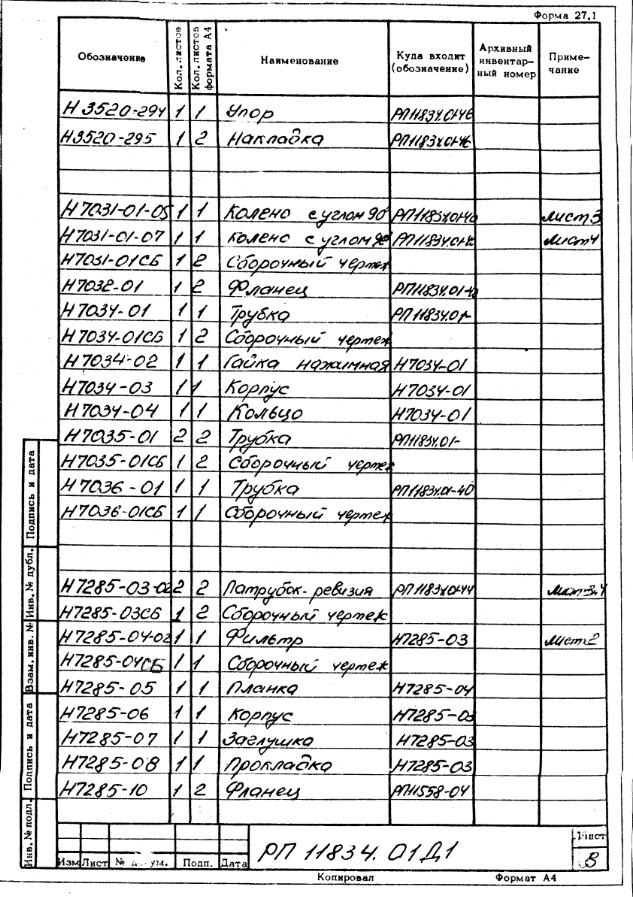 Форма 27.1
Обозначение Кол. листов Кол. листов формата А4 Наименование Куда входит (обозначение) Архивный инвентар-ный номер Приме-чание
Н3520-294 1 1 Упор РП11834.01-46
Н3520-295 1 2 Накладка РП11834.01-46
Н7031-01-05 1 1 Колено с углом 90° РП11834.01-40 лист 3
Н7031-01-07 1 1 Колено с углом 90° лист 4
Н7031-01СБ 1 2 Сборочный чертеж
Н7032-01 1 2 Фланец РП11834.01-40
Н7034-01 1 1 Трубка РП11834.01-
Н7034-01СБ 1 2 Сборочный чертеж
Н7034-02 1 1 Гайка нажимная Н7034-01
Н7034-03 1 1 Корпус Н7034-01
Н7034-04 1 1 Кольцо Н7034-01
Н7035-01 2 2 Трубка РП11834.01-
Н7035-01СБ 1 2 Сборочный чертеж
Н7036-01 1 1 Трубка РП11834.01-40
Н7036-01СБ 1 1 Сборочный чертеж
Н7285-03-02 2 2 Патрубок-ревизия РП11834.01-44 лист 3,4
Н7285-03СБ 1 2 Сборочный чертеж
Н7285-04-02 1 1 Фильтр Н7285-03 лист 2
Н7285-04СБ 1 1 Сборочный чертеж
Н7285-05 1 1 Планка Н7285-04
Н7285-06 1 1 Корпус Н7285-03
Н7285-07 1 1 Заглушка Н7285-03
Н7285-08 1 1 Прокладка Н7285-03
Н7285-10 1 2 Фланец РП11558-04
Инв. № подл. Подпись и дата Взам. инв. № Инв. № дубл. Подпись и дата
РП 11834.01Д1
Лист
8
Изм Лист Подп. Дата
Копировал Формат А4